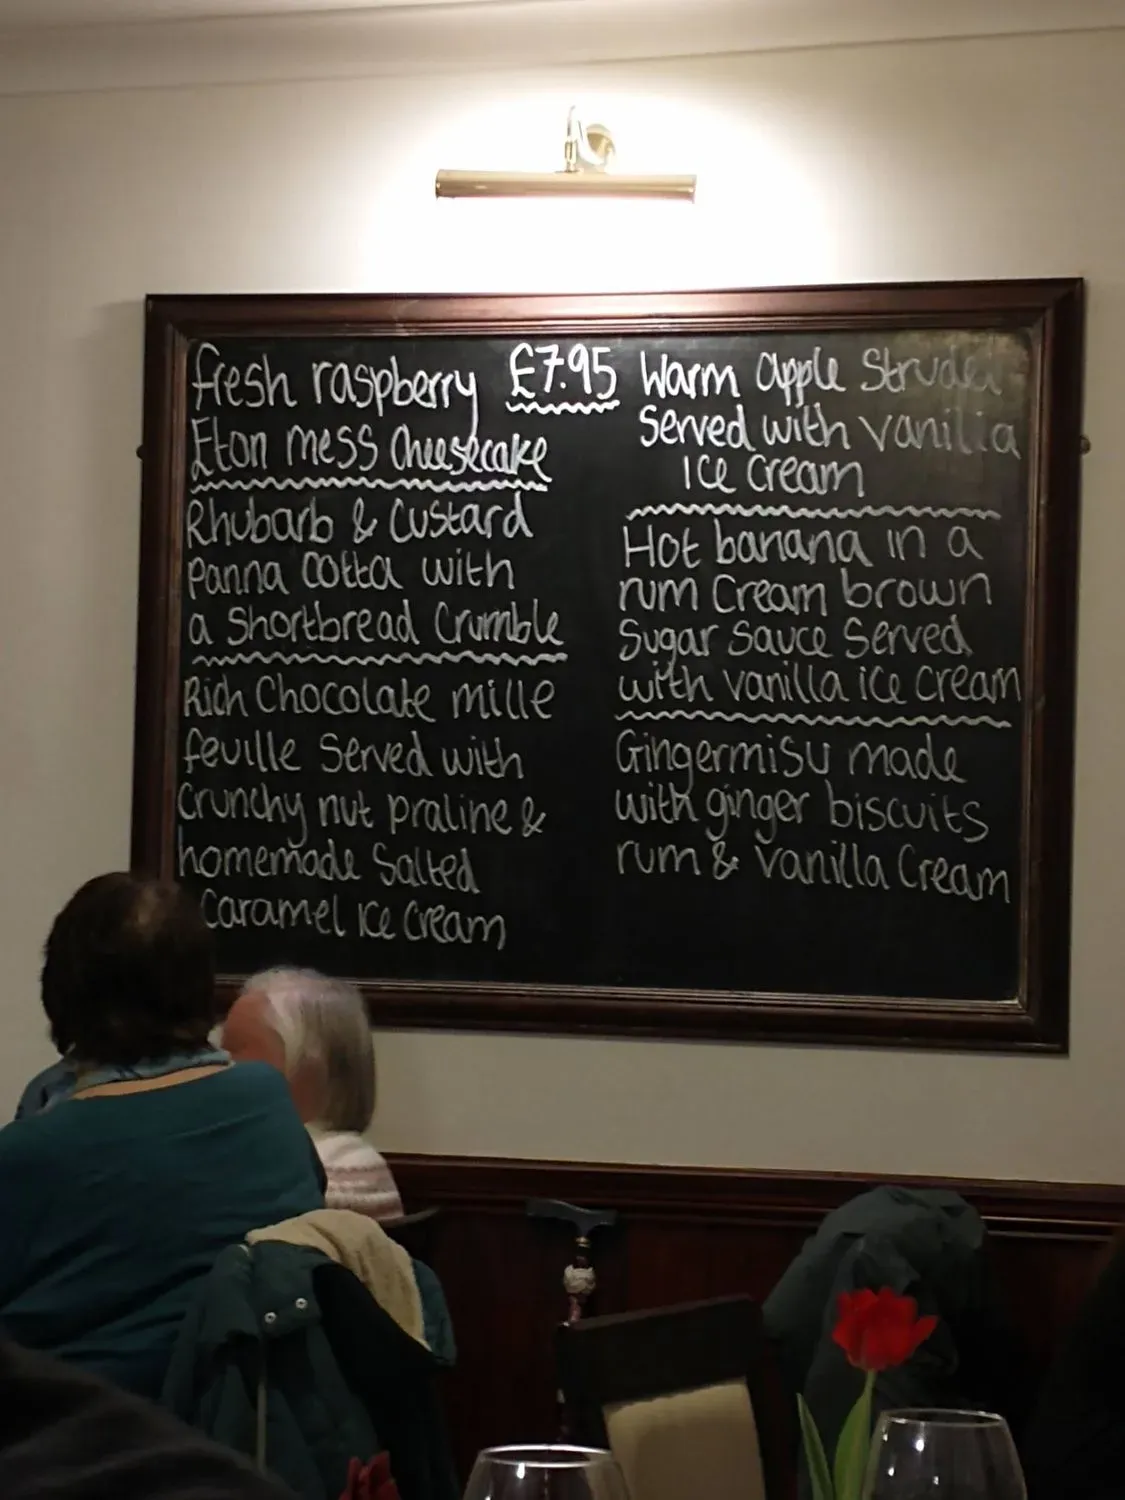 fresh raspberry
Eton mess Cheesecake
Rhubarb & Custard
Panna Cotta with
a Shortbread Crumble
Rich Chocolate mille
feuille Served with
Crunchy nut praline &
homemade Salted
Caramel ice Cream
£7.95
Warm apple Strudel
Served with vanilla
ice Cream
Hot banana in a
rum Cream brown
Sugar Sauce Served
with vanilla ice Cream
Gingermisu made
with ginger biscuits
rum & vanilla Cream